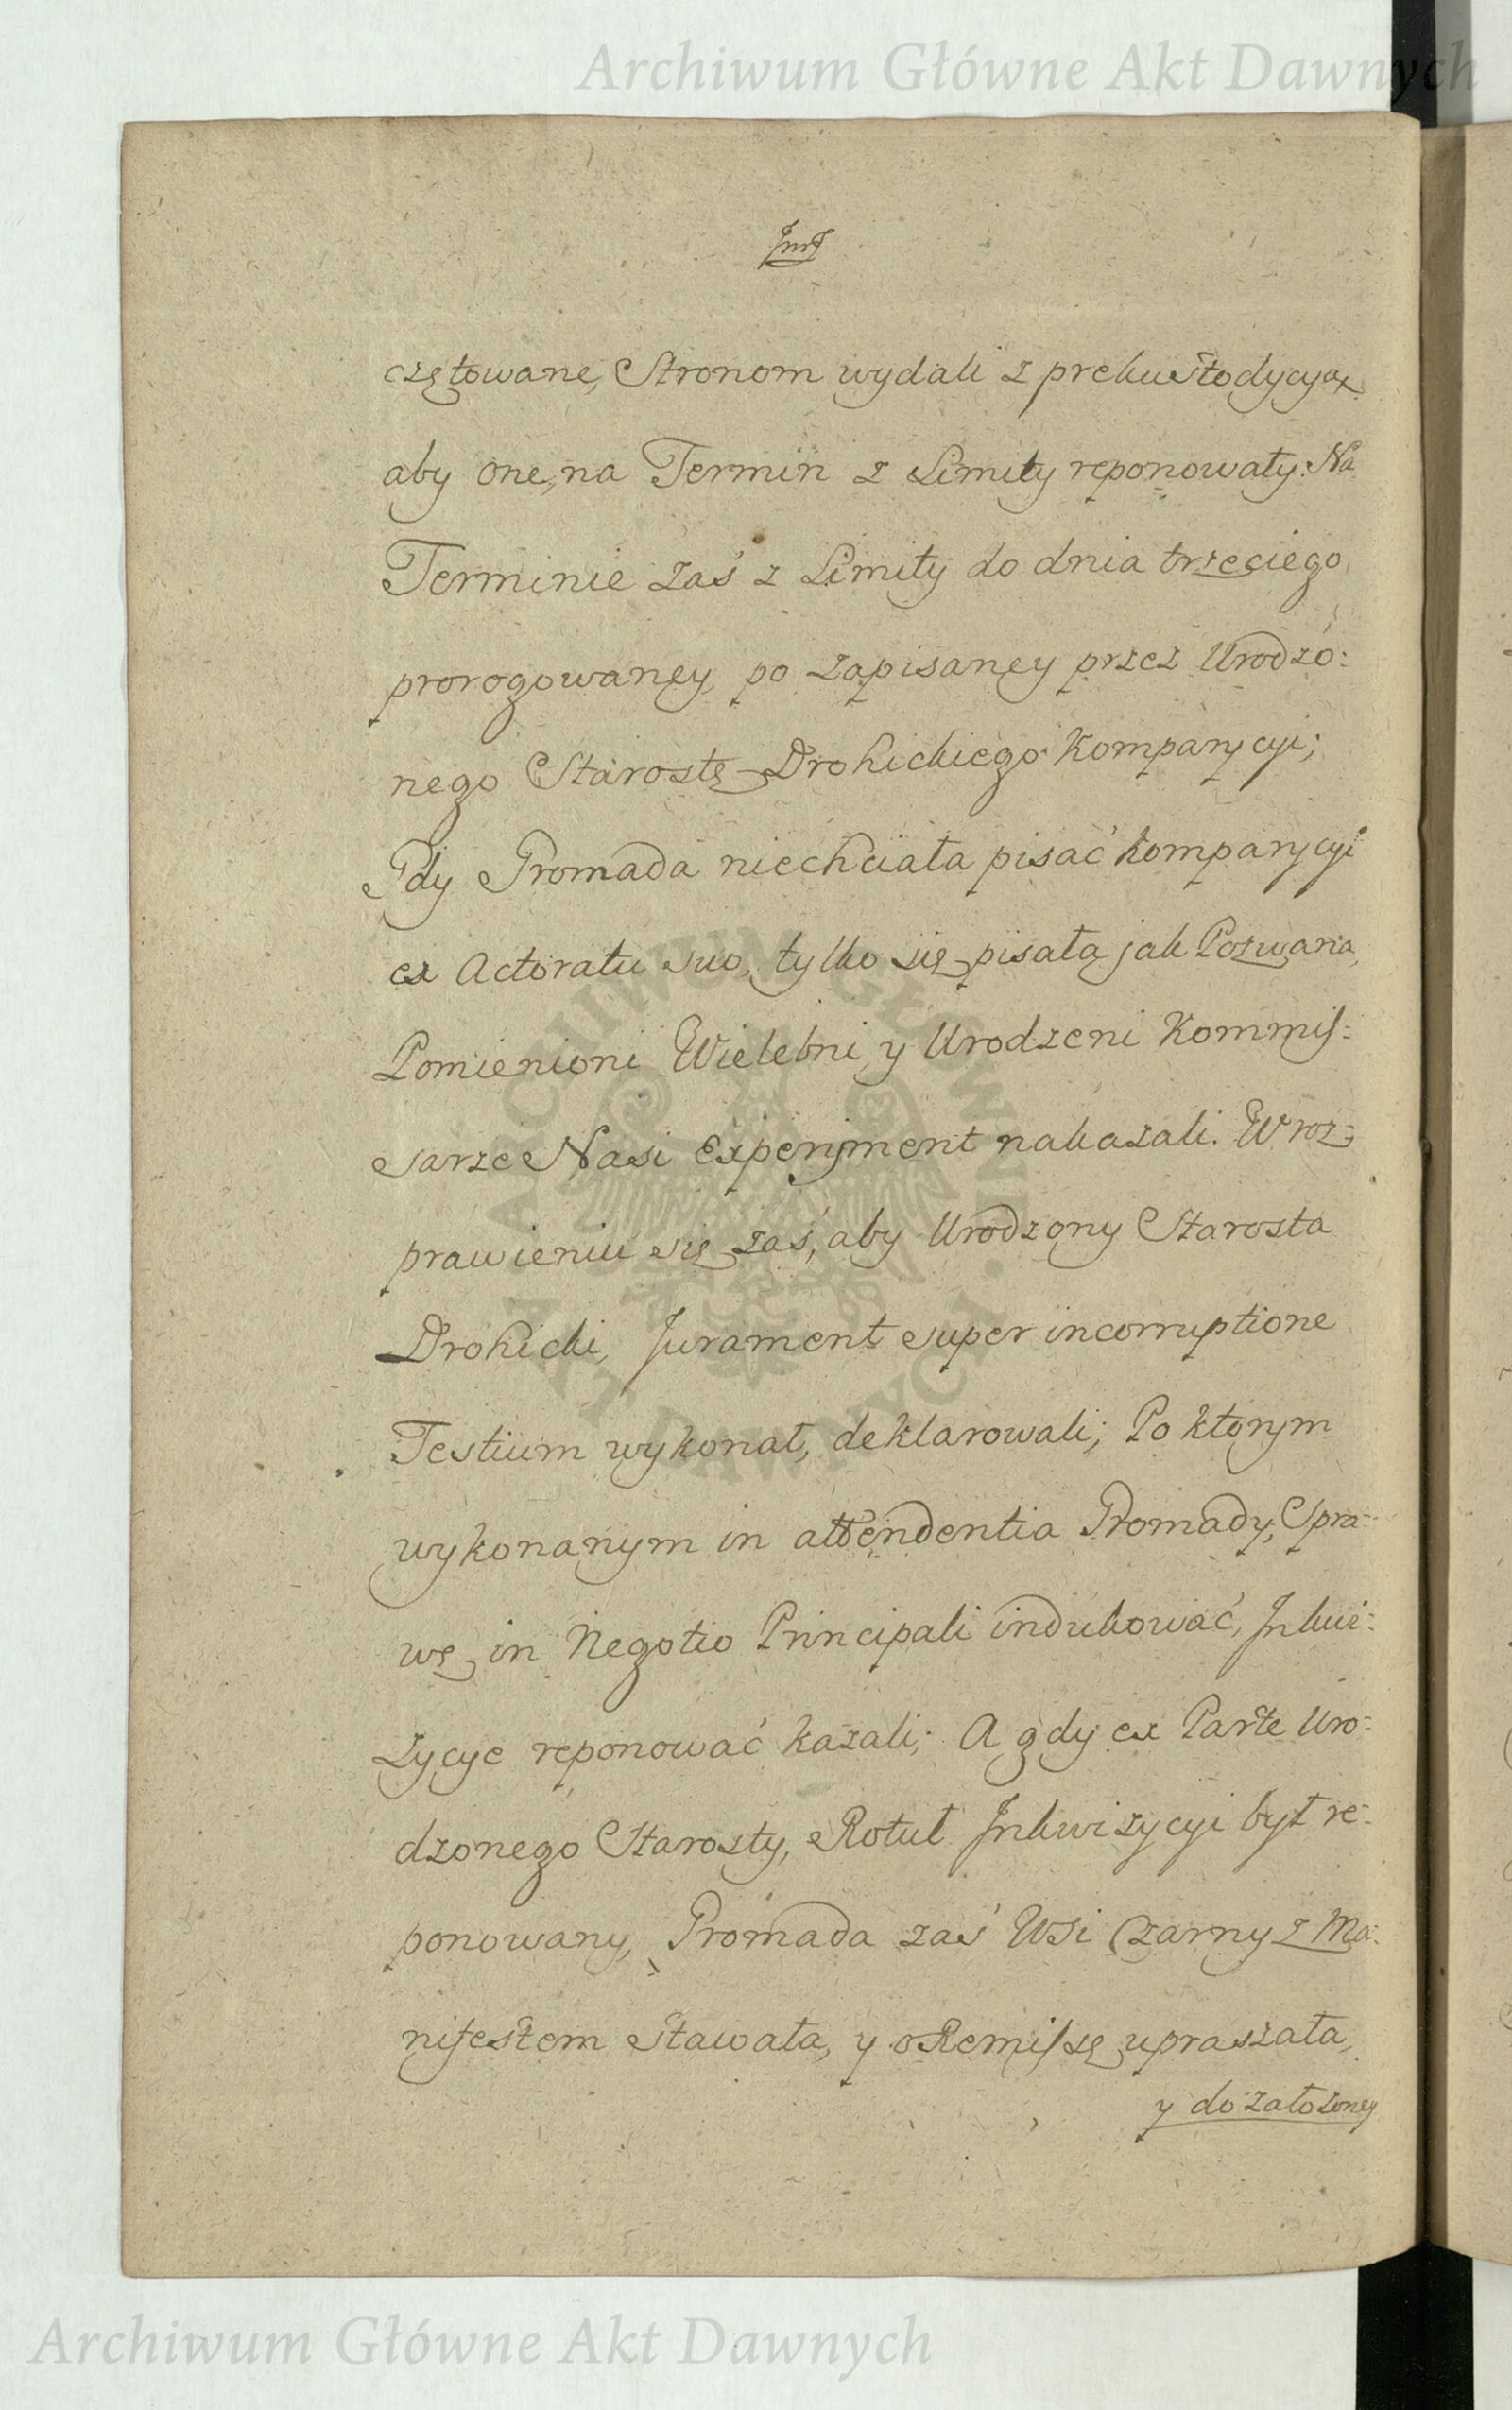 Archiwum Główne Akt Dawnych
czętowane, Stronom wydali z prekustodycyą
aby one, na Termin z Limity reponowały: Na
Terminie zaś z Limity do dnia trzeciego,
prorogowaney, po zapisaney przez Urodzo:
nego Starostę Drohickiego Komparycyi;
Gdy Gromada niechciała pisać Komparycyi
ex Actoratu suo, tylko się pisała jak Pozwana,
Pomienioni Wielebni y Urodzeni Kommis:
sarze Nasi Experyment nakazali. W roz:
prawieniu się zaś, aby Urodzony Starosta
Drohicki, Jurament super incorruptione
Testium wykonał, deklarowali; Po którym
wykonanym in attendentia Gromady, Spra:
wę in Negotio Principali indukować, Inkwi:
zycye reponować kazali; A gdy ex Parte Uro:
dzonego Starosty, Rotuł Inkwizycyi był re:
ponowany, Gromada zaś Wsi Czarny z Ma:
nifestem stawała, y o Remissę upraszała,
y do założoney
Archiwum Główne Akt Dawnych